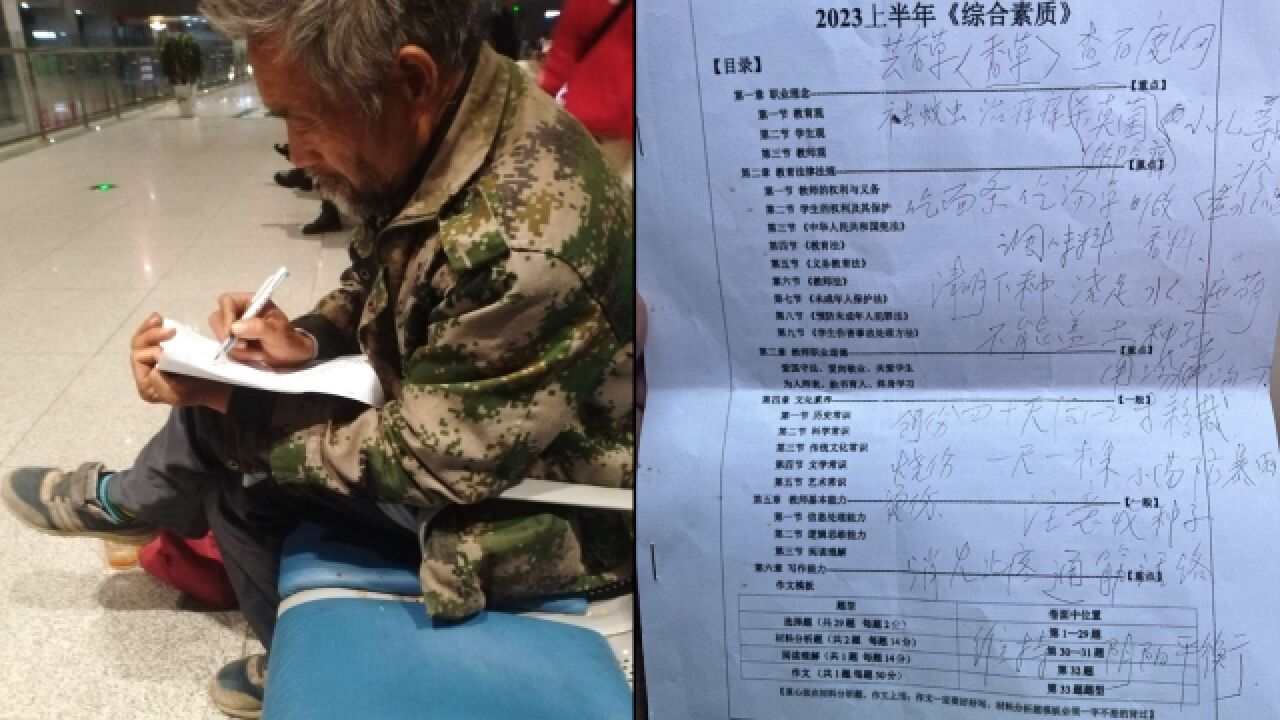 2023上半年《综合素质》
芸香草(香草) 查百度问
【目录】
第一章 职业理念 【重点】
第一节 教育观
第二节 学生观
第三节 教师观
第二章 教育法律法规 【重点】
第一节 教师的权利与义务
第二节 学生的权利及其保护
吃面条 吃汤
第三节 《中华人民共和国宪法》
调料 香料
第四节 《教育法》
第五节 《义务教育法》
第六节 《教师法》
清明下种 浇足水
第七节 《未成年人保护法》
第八节 《预防未成年人犯罪法》
不能盖土 种子
第九节 《学生伤害事故处理方法》
第三章 教师职业道德 【重点】
爱国守法、爱岗敬业、关爱学生
为人师表、教书育人、终身学习
第四章 文化素养 【一般】
第一节 历史常识
四十天
第二节 科学常识
第三节 传统文化常识
烧伤 一尺一棵 小苗防暴雨
第四节 文学常识
第五节 艺术常识
第五章 教师基本能力 【一般】
注意收种子
第一节 信息处理能力
第二节 逻辑思维能力
第三节 阅读理解
第六章 写作能力 【重点】
消炎止疼 通 络
作文模板
题型 卷面中位置
选择题(共29题 每题2分) 第1—29题
材料分析题(共2题 每题14分) 第30—31题
维持 阴阳平衡
阅读理解(共1题 每题14分) 第32题
作文(共1题 每题50分) 第33题题型
【重心放在材料分析题、作文上面;作文一定要好好写;材料分析题模板必须一字不差的背过】